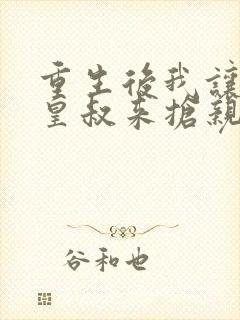 重生後我讓
皇叔来搶親
谷和也